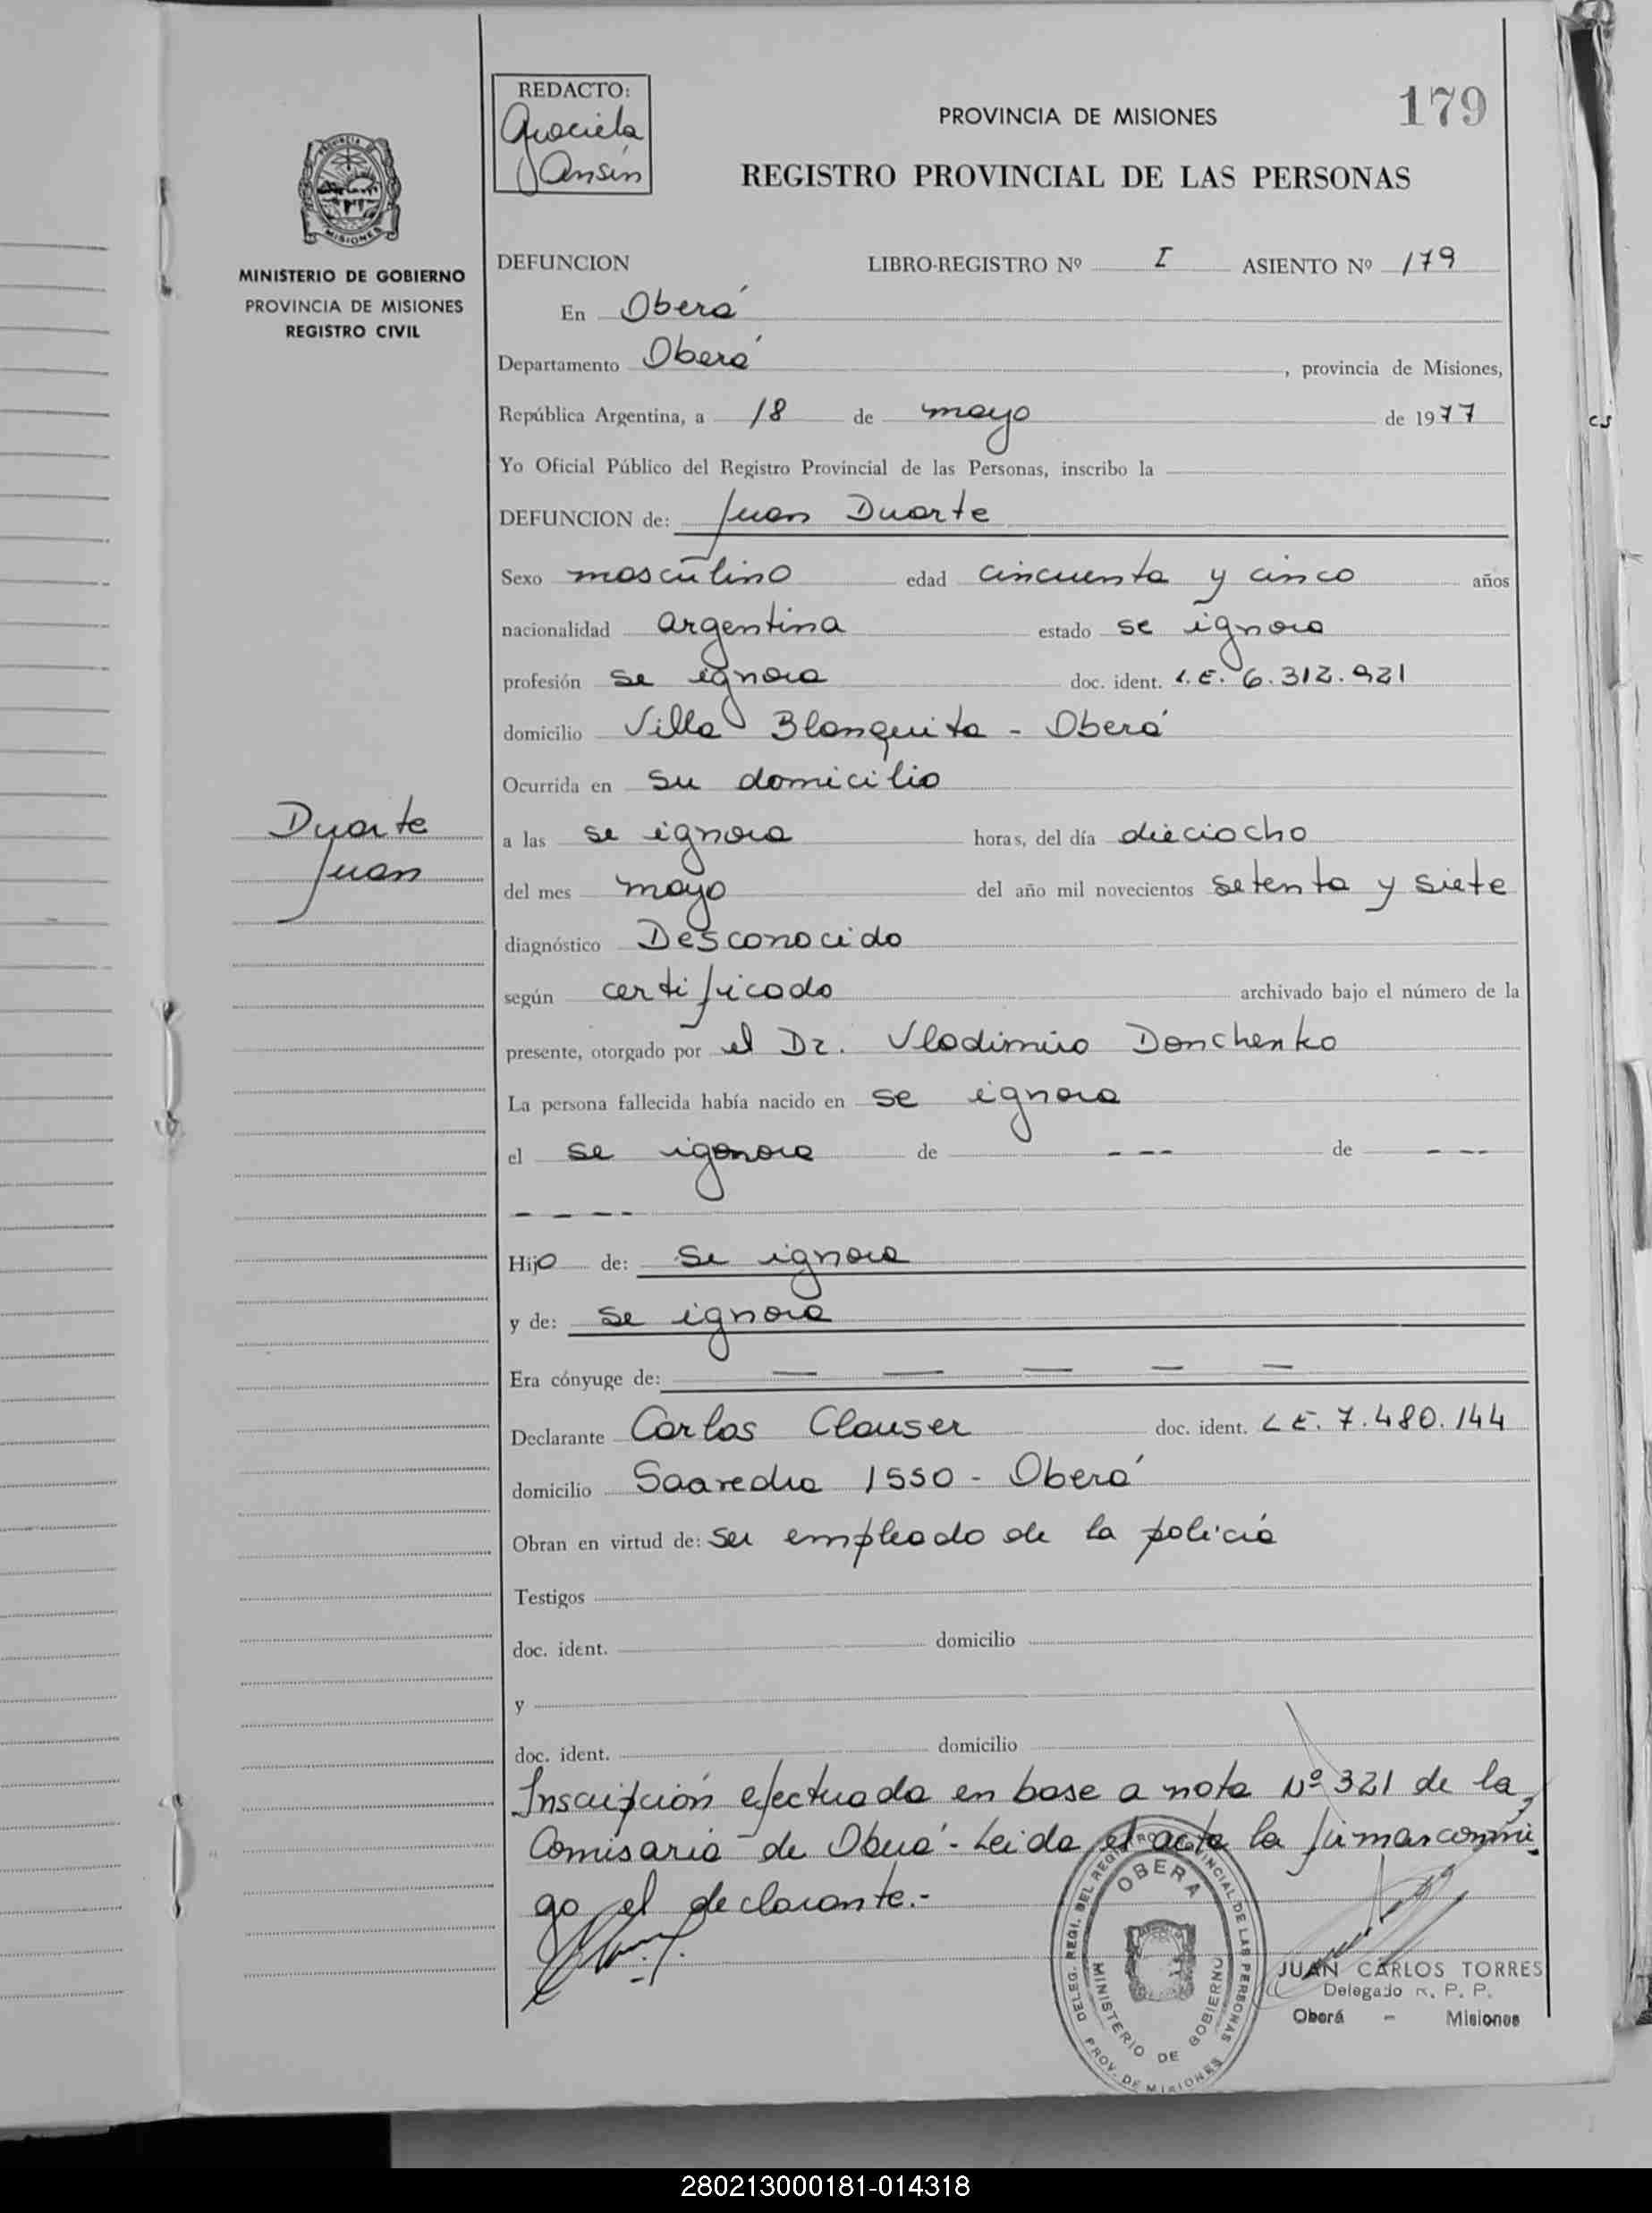 REDACTO:
Graciela
Ansin
179
PROVINCIA DE MISIONES
REGISTRO PROVINCIAL DE LAS PERSONAS
MISIONES
MINISTERIO DE GOBIERNO
PROVINCIA DE MISIONES
REGISTRO CIVIL
DEFUNCION LIBRO-REGISTRO Nº I ASIENTO Nº 179
En Oberá
Departamento Oberá, provincia de Misiones,
República Argentina, a 18 de mayo de 1977
Yo Oficial Público del Registro Provincial de las Personas, inscribo la
DEFUNCION de: Juan Duarte
Sexo masculino edad cincuenta y cinco años
nacionalidad argentina estado se ignora
profesión se ignora doc. ident. L.E. 6.312.921
domicilio Villa Blanquita - Oberá
Ocurrida en su domicilio
Duarte
Juan
a las se ignora horas, del día dieciocho
del mes mayo del año mil novecientos setenta y siete
diagnóstico Desconocido
según certificado archivado bajo el número de la
presente, otorgado por el Dr. Vladimiro Donchenko
La persona fallecida había nacido en se ignora
el se igonora de - - - de - - -
- - - -
Hijo de: se ignora
y de: se ignora
Era cónyuge de: — — — — —
Declarante Carlos Clauser doc. ident. L.E. 7.480.144
domicilio Saavedra 1550 - Oberá
Obran en virtud de: ser empleado de la policía
Testigos
doc. ident. domicilio
y
doc. ident. domicilio
Inscripción efectuada en base a nota Nº 321 de la
Comisaría de Oberá - Leida el acta la firma conmi
go el declarante.-
OBERA
MINISTERIO DE GOBIERNO
PROV. DE MISIONES
JUAN CARLOS TORRES
Delegado R. P. P.
Oberá - Misiones
280213000181-014318